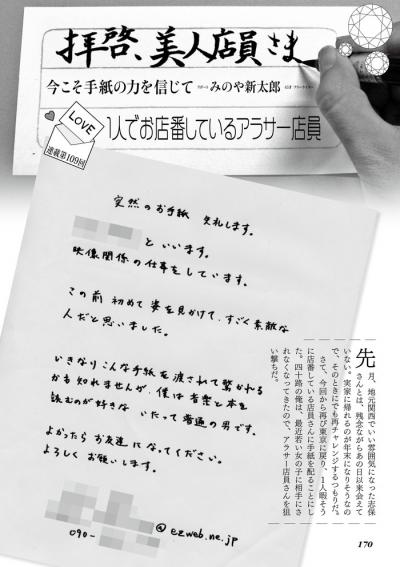 拝啓、美人店員さま
今こそ手紙の力を信じて
みのや新太郎
LOVE
連載第109回
1人でお店番しているアラサー店員
突然のお手紙 失礼します。
といいます。
映像関係の仕事をしています。
この前 初めて姿を見かけて、すごく素敵な
人だと思いました。
いきなりこんな手紙を渡されて驚かれる
かも知れませんが、僕は音楽と本を
読むのが好きな いたって普通の男です。
よかったら お友達になってください。
よろしく お願いします。
@ezweb.ne.jp
090-
先月、地元関西でいい雰囲気になった志保
さんとは、残念ながらあの日以来会えて
いない。実家に帰れるのが年末になりそうなの
で、そのときにでも再チャレンジするつもりだ。
さて、今回から再び東京に戻り、1人暇そう
に店番している店員さんに手紙を配ることにし
た。四十路の俺は、最近若い女の子に相手にさ
れなくなってきたので、アラサー店員さんを狙
い撃ちだ。
170